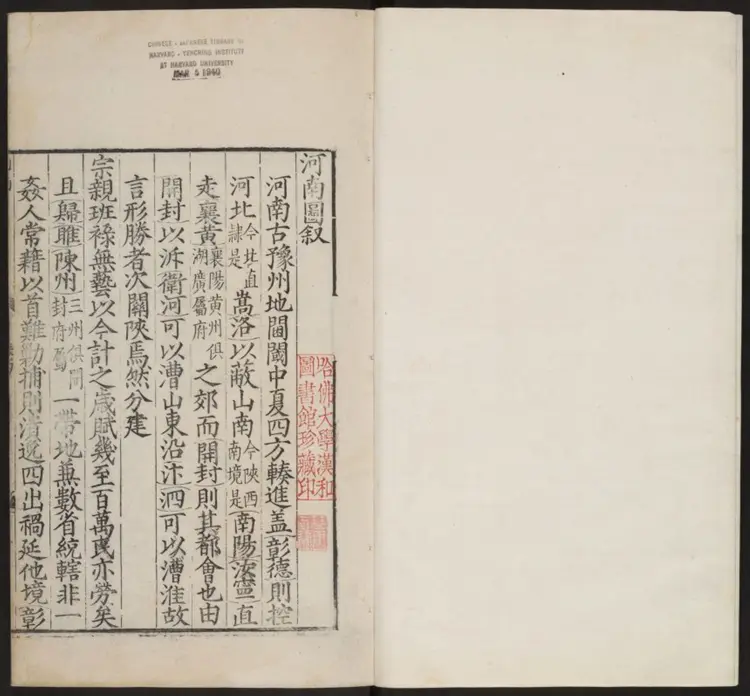 CHINESE - JAPANESE LIBRARY OF
HARVARD - YENCHING INSTITUTE
AT HARVARD UNIVERSITY
MAR 5 1940
河南圖叙
河南古豫州地閫閾中夏四方輳進蓋彰德則控
河北今北直隷是嵩洛以蔽山南今陝西南境是南陽汝寧直
走襄黄襄陽黄州俱湖廣屬府之郊而開封則其都會也由
開封以泝衛河可以漕山東沿汴泗可以漕淮故
言形勝者次關陝焉然分建
宗親班祿無藝以今計之歳賦幾至百萬民亦勞矣
且歸睢陳州三州俱開封府屬一帶地兼數省統轄非一
姦人常藉以首難勦捕則潰逸四出禍延他境彰
哈佛大學漢和
圖書館珍藏印